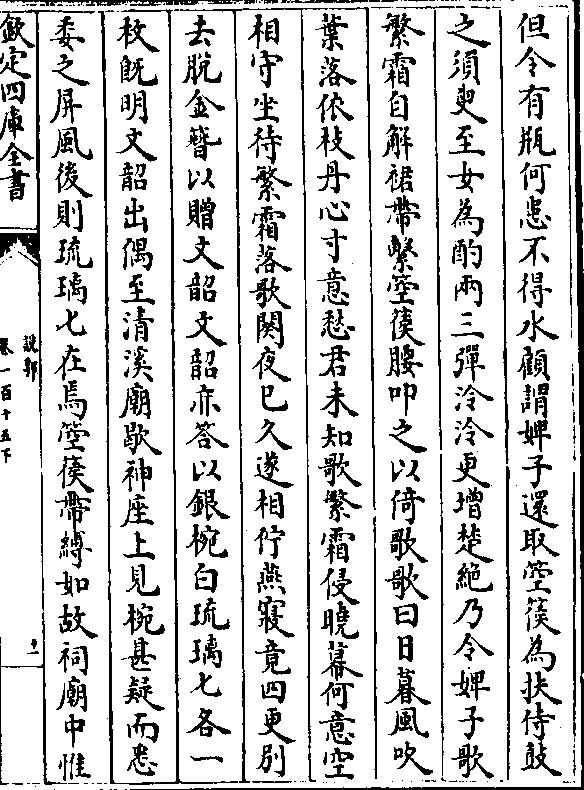 但令有瓶何患不得水顧謂婢子還取箜篌為扶侍鼓
之須臾至女為酌兩三彈泠泠更增楚絶乃令婢子歌
繁霜自解裙帶繫箜篌腰叩之以倚歌歌曰日暮風吹
葉落依枝丹心寸意愁君未知歌繁霜侵曉幕何意空
相守坐待繁霜落歌闋夜已久遂相佇燕寢竟四更別
去脫金簪以贈文韶文韶亦答以銀椀白琉璃匕各一
枚旣明文韶出偶至清溪廟歇神座上見椀甚疑而悉
委之屏風後則琉璃匕在焉箜篌帶縛如故祠廟中惟
欽定四庫全書
說郛
卷一百十五下
九